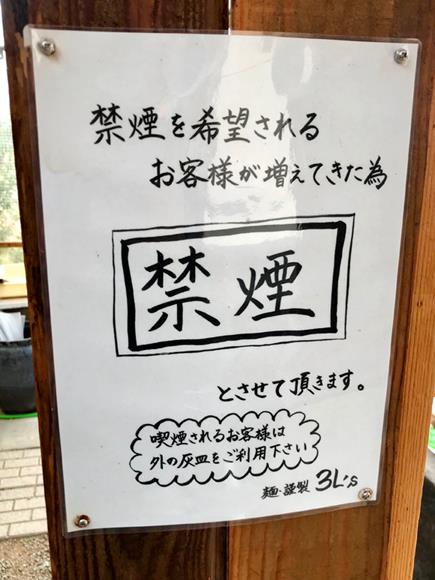 禁煙を希望される
お客様が増えてきた為
禁煙
とさせて頂きます。
喫煙されるお客様は
外の灰皿をご利用下さい
麺・謹製 3L's